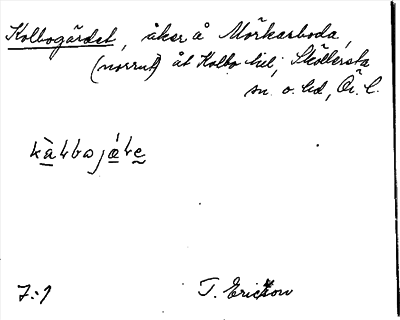 Kolbogärdet, åker å Mörkarboda,
(norrut) åt Kolbo till, Sköllersta
sn. o. hd, Ör. l.
7:9
T. Ericsson